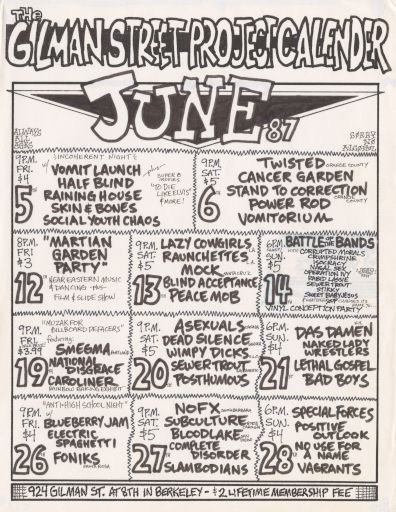 THE
GILMAN STREET PROJECT CALENDER
JUNE '87
ALWAYS
ALL
AGES
SORRY
NO
ALCOHOL
9 P.M.
FRI.
$4
5
"INCOHERENT NIGHT"
w/
VOMIT LAUNCH
HALF BLIND
RAINING HOUSE
SKIN & BONES
SOCIAL YOUTH CHAOS
plus
SUPER 8
MOVIES
"SO DIE
LIKE ELVIS"
& MORE!
9 P.M.
SAT.
$5
6
TWISTED ORANGE COUNTY
CANCER GARDEN
STAND TO CORRECTION ORANGE COUNTY
POWER ROD
VOMITORIUM
8 P.M.
FRI.
$3
12
"MARTIAN
GARDEN
PARTY"
NEAR EASTERN MUSIC
& DANCING
FILM & SLIDE SHOW
9 P.M.
SAT.
$5
13
LAZY COWGIRLS
RAUNCHETTES
MOCK SANTA CRUZ
BLIND ACCEPTANCE
PEACE MOB
6 P.M.
SUN.
$5
14
BATTLE OF THE BANDS
CORRUPTED MORALS
CRIMPSHRINE
ISOCRACY
NASAL SEX
OPERATION IVY
RABID LASSIE
SEWER TROUT
STIKKY
SWEET BABY JESUS
VINYL CONCEPTION PARTY
9 P.M.
FRI.
$3.99
19
"MUZAK FOR
BILLBOARD DEFACERS"
featuring:
SMEGMA PORTLAND
NATIONAL
DISGRACE
CAROLINER
RAINBOW BAKING EXHIBIT
9 P.M.
SAT.
$5
20
ASEXUALS CANADA
DEAD SILENCE
WIMPY DICKS
SEWER TROUT
POSTHUMOUS
6 P.M.
SUN.
$4
21
DAS DAMEN
NAKED LADY
WRESTLERS
LETHAL GOSPEL
BAD BOYS
9 P.M.
FRI.
$4
26
"ANTI-HIGH SCHOOL NIGHT"
w/
BLUEBERRY JAM
ELECTRIC
SPAGHETTI
FONIKS
SANTA ROSA
9 P.M.
SAT.
$5
27
NOFX SANTA BARBARA
SUBCULTURE
BLOODLAKE
COMPLETE
DISORDER
SLAMBODIANS
6 P.M.
SUN.
$4
28
SPECIAL FORCES
POSITIVE
OUTLOOK
NO USE FOR
A NAME
VAGRANTS
924 GILMAN ST. AT 8TH IN BERKELEY - $2 LIFETIME MEMBERSHIP FEE